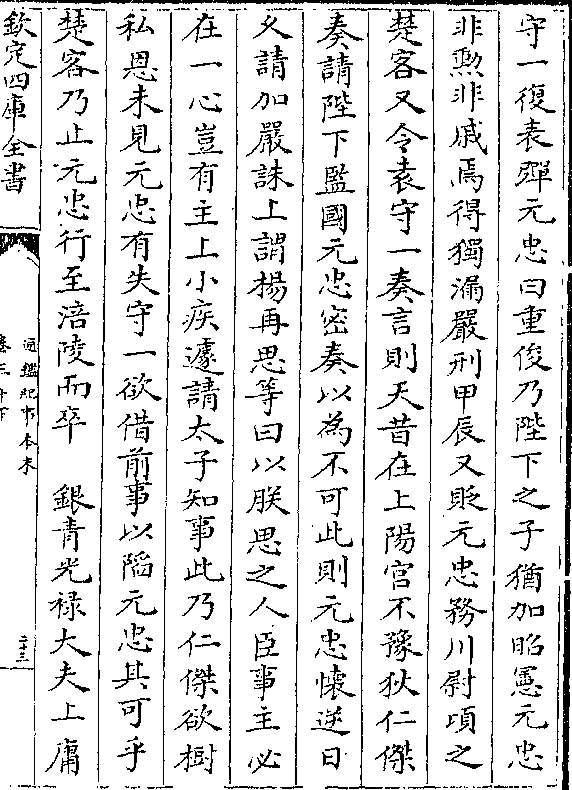 守一復表彈元忠曰重俊乃陛下之子猶加昭憲元忠
非勲非戚焉得獨漏嚴刑甲辰又貶元忠務川尉頃之
楚客又令袁守一奏言則天昔在上陽宫不豫狄仁傑
奏請陛下監國元忠密奏以為不可此則元忠懐逆日
久請加嚴誅上謂楊再思等曰以朕思之人臣事主必
在一心豈有主上小疾遽請太子知事此乃仁傑欲樹
私恩未見元忠有失守一欲借前事以陥元忠其可乎
楚客乃止元忠行至涪陵而卒　銀青光禄大夫上庸
欽定四庫全書
通鑑紀事本末
卷三十下
二十三